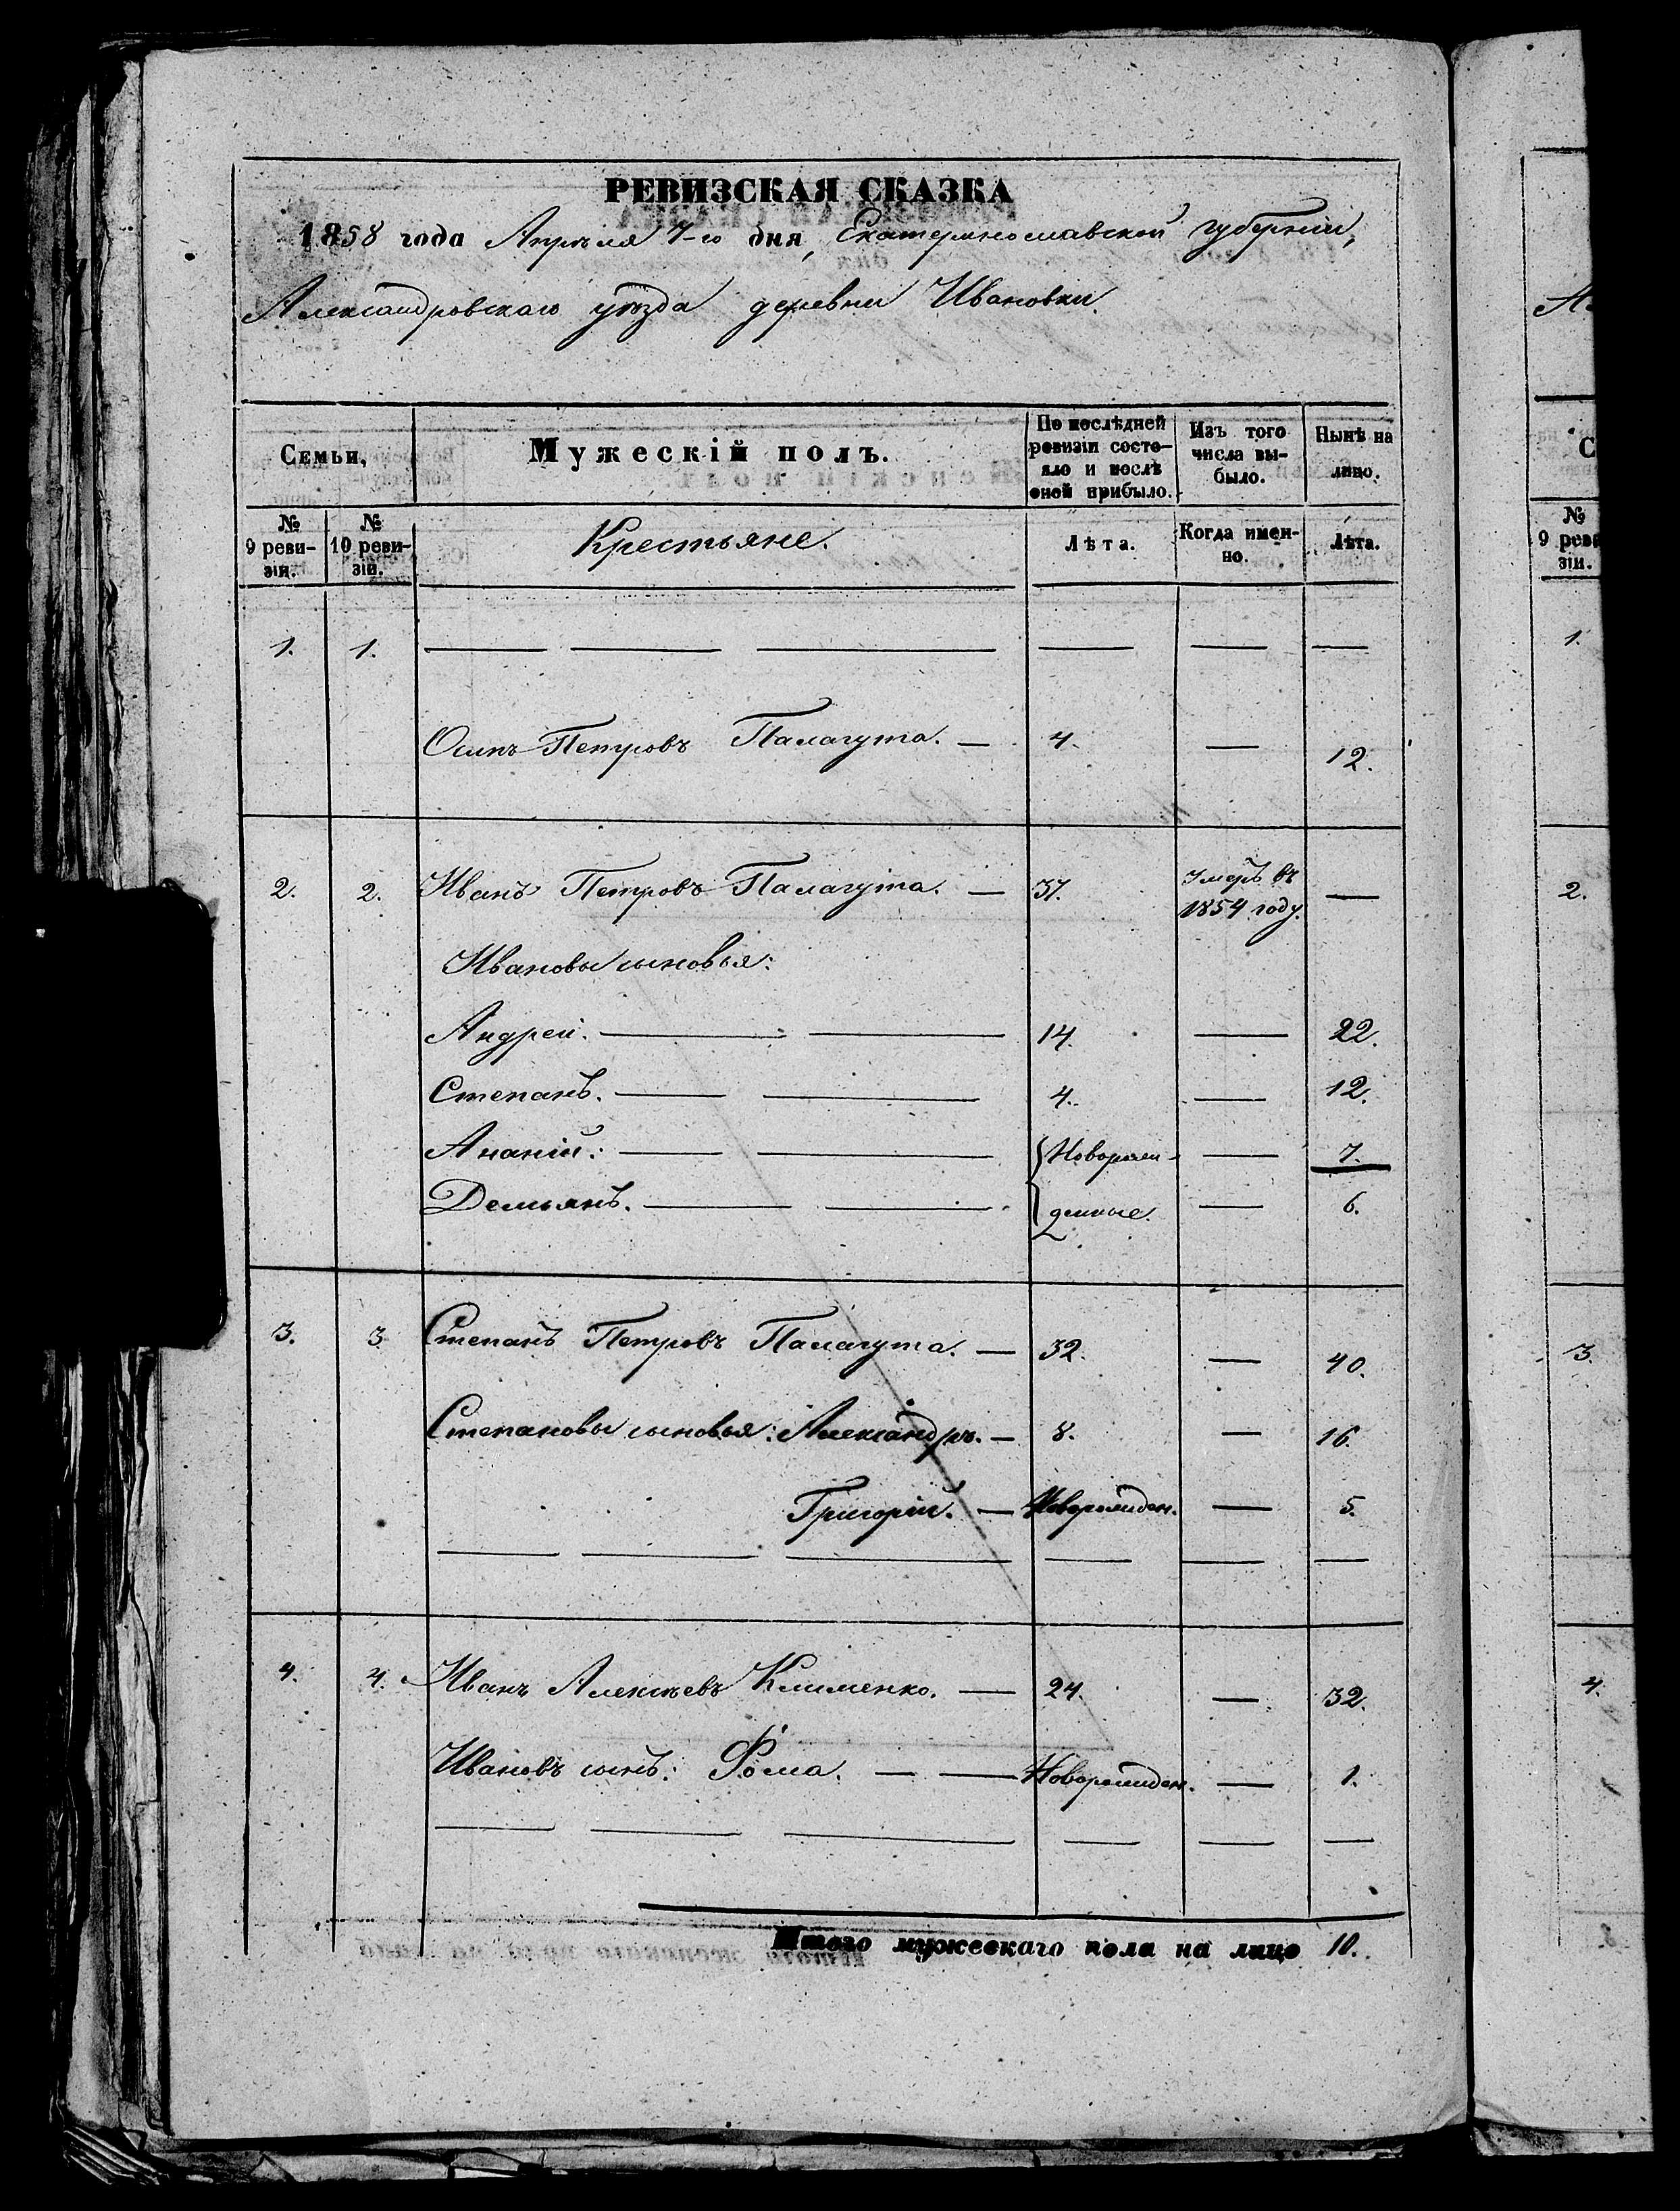 РЕВИЗСКАЯ СКАЗКА
1858 года Апрѣля 7-го дня, Екатеринославской губерніи,
Александровскаго уѣзда деревни Ивановки.
Семьи,
Мужескій полъ.
По послѣдней ревизіи состояло и послѣ оной прибыло.
Изъ того числа выбыло.
Нынѣ на лицо.
№ 9 ревизіи.
№ 10 ревизіи.
Крестьяне.
Лѣта.
Когда именно.
Лѣта.
1. 1. — — — — — —
Осипъ Петровъ Палагута. — 4. — 12.
2. 2. Иванъ Петровъ Палагута. — 37. Умеръ въ 1854 году. —
Ивановы сыновья:
Андрей. — — 14. — 22.
Степанъ. — — 4. — 12.
Ананій. — — Новорож- — 7.
Демьянъ. — — денные. — 6.
3. 3 Степанъ Петровъ Палагута. — 32. — 40.
Степановы сыновья: Александръ. — 8. — 16.
Григорій. — Новорожден. — 5.
— — — — — —
4. 4. Иванъ Алексѣевъ Клименко. — 24. — 32.
Ивановъ сынъ: Фома. — — Новорожден. — 1.
— — — — — —
Итого мужескаго пола на лицо 10.
А
С
№
9 реви
зіи.
1.
2.
3.
4.